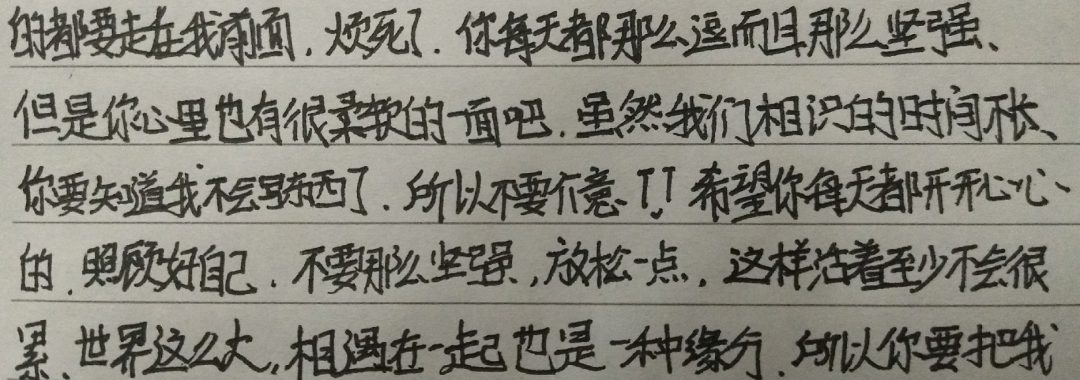 的都要走在我前面,烦死了.你每天都那么逗而且那么坚强、
但是你心里也有很柔软的一面吧.虽然我们相识的时间不长、
你要知道我不会写东西了.所以不要介意!!希望你每天都开开心心
的.照顾好自己.不要那么坚强,放松一点.这样活着至少不会很
累.世界这么大,相遇在一起也是一种缘分.所以你要把我